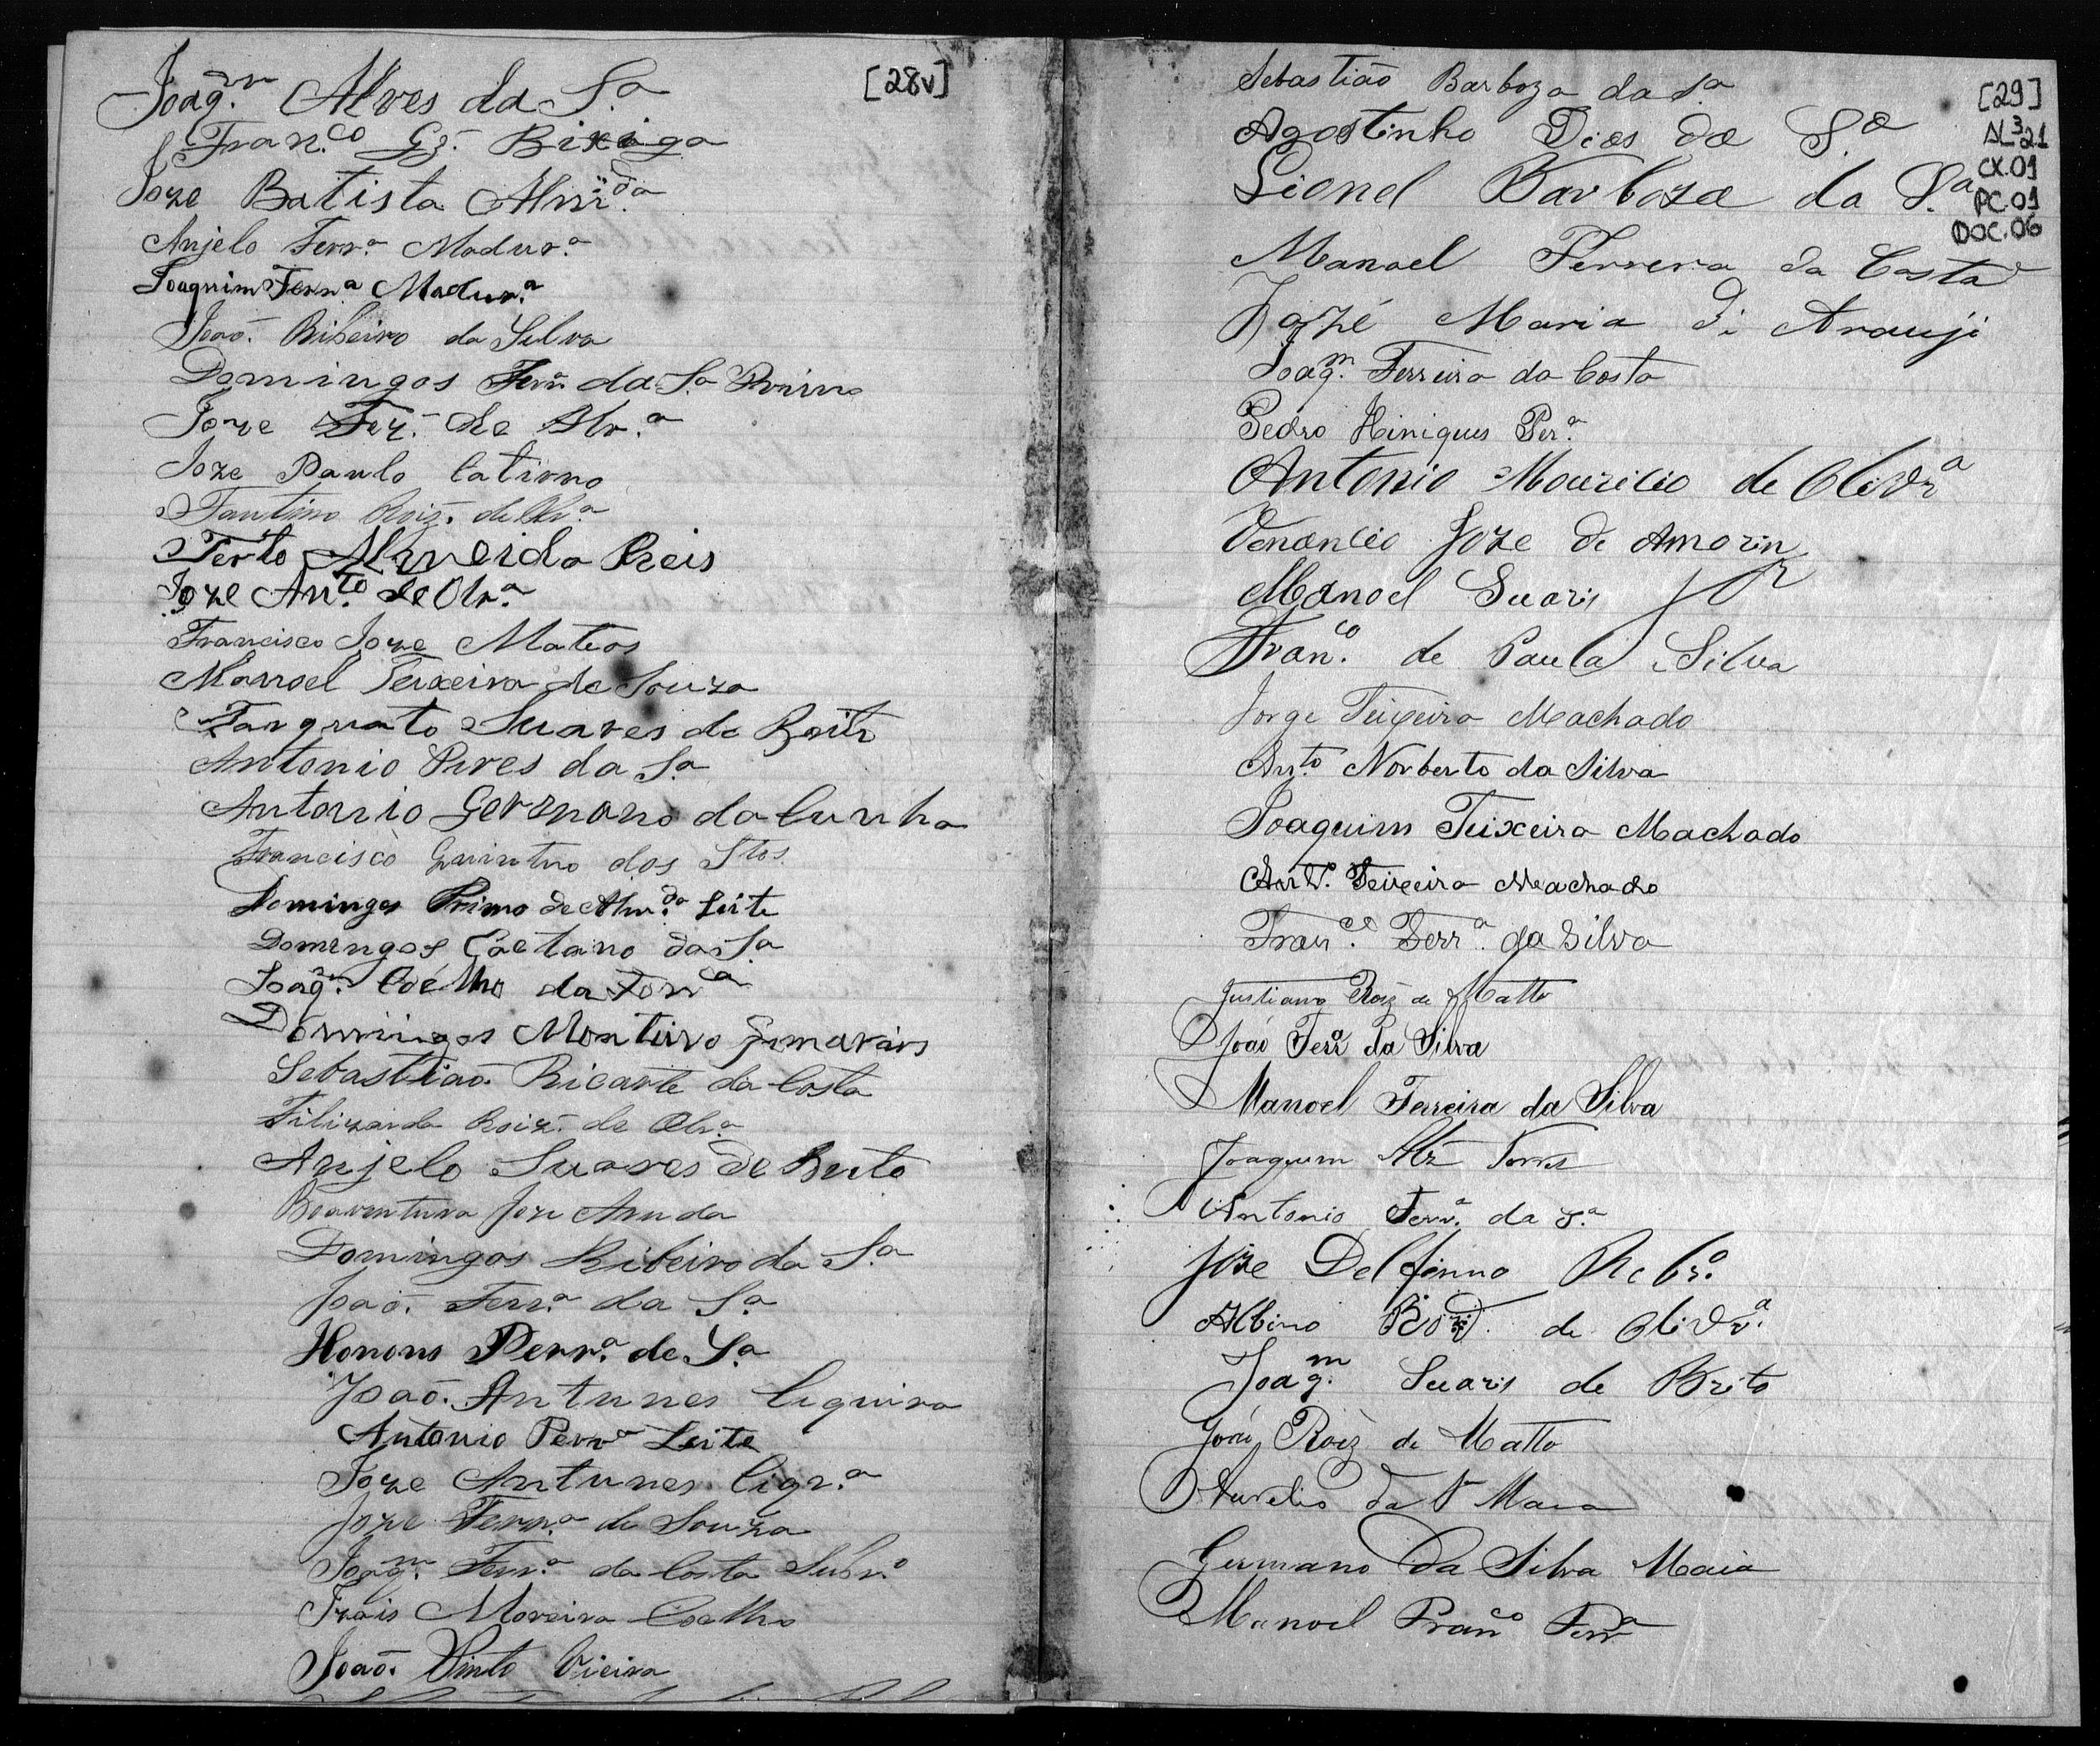 [28v]
Joaq.m Alves da S.a
Fran.co Gz. Bixiga
Joze Batista Alm.da
Anjelo Ferr.a Madur.a
Joaquim Ferr.a Madur.a
Joaõ. Ribeiro da Silva
Domingos Ferr.a da S.a Primo
Joze Fez. de Olr.a
Joze Paulo Catirno
Fantino Roiz. de Olr.a
Terto Almeida Reis
Joze An.to de Olr.a
Francisco Joze Mateos
Manoel Teixeira de Souza
Torquato Suares de
Antonio Pires da S.a
Antonio Germano da Cunha
Francisco Quintno dos Stos
Domingos Primo de Alm.da Leite
Domingos Caetano da S.a
Joaq.m Coelho da
Domingos Monteiro Gimarais
Sebastiaõ Ricarte da Costa
Roiz. de Olr.a
Anjelo Suares de Brito
Boaventura Joze Arruda
Domingos Ribeiro da S.a
Joaõ. Ferr.a da S.a
Perr.a de S.a
Joaõ. Antunes Ciquira
Antonio Perr.a Leite
Joze Antunes Ciqr.a
Joze Ferr.a de Souza
Joaq.m Ferr.a da Costa
Moreira Coelho
Joaõ. Pinto Vieira
[29]
AL321
CX.01
PC.01
DOC.06
Sebastião Barboza da S.a
Agostinho Dias da S.a
Lionel Barboza da S.a
Manoel Ferrera da Costa
Jozé Maria di Arauji
Joaq.m Ferreira da Costa
Pedro Hiniques Per.a
Antonio Mauricio de Olivr.a
Venancio Joze de Amorin
Manoel Suaris
Fran.co de Paula Silva
Jorge Teixeira Machado
An.to Norberto da Silva
Joaquim Teixeira Machado
Ant.o Teixeira Machado
Fran.co Ferr.a da Silva
Justiano Roiz de Matto
João Ferr.a da Silva
Manoel Ferreira da Silva
Joaquim Alz Torres
Antonio Ferr.a da S.a
Joze Delfinno Rebr.o
Albino de Olivr.a
Joaq.m Suaris de Brito
Roiz de Matto
Aurelio da S.a Maia
Germano da Silva Maia
Manoel Fran.co Ferr.a